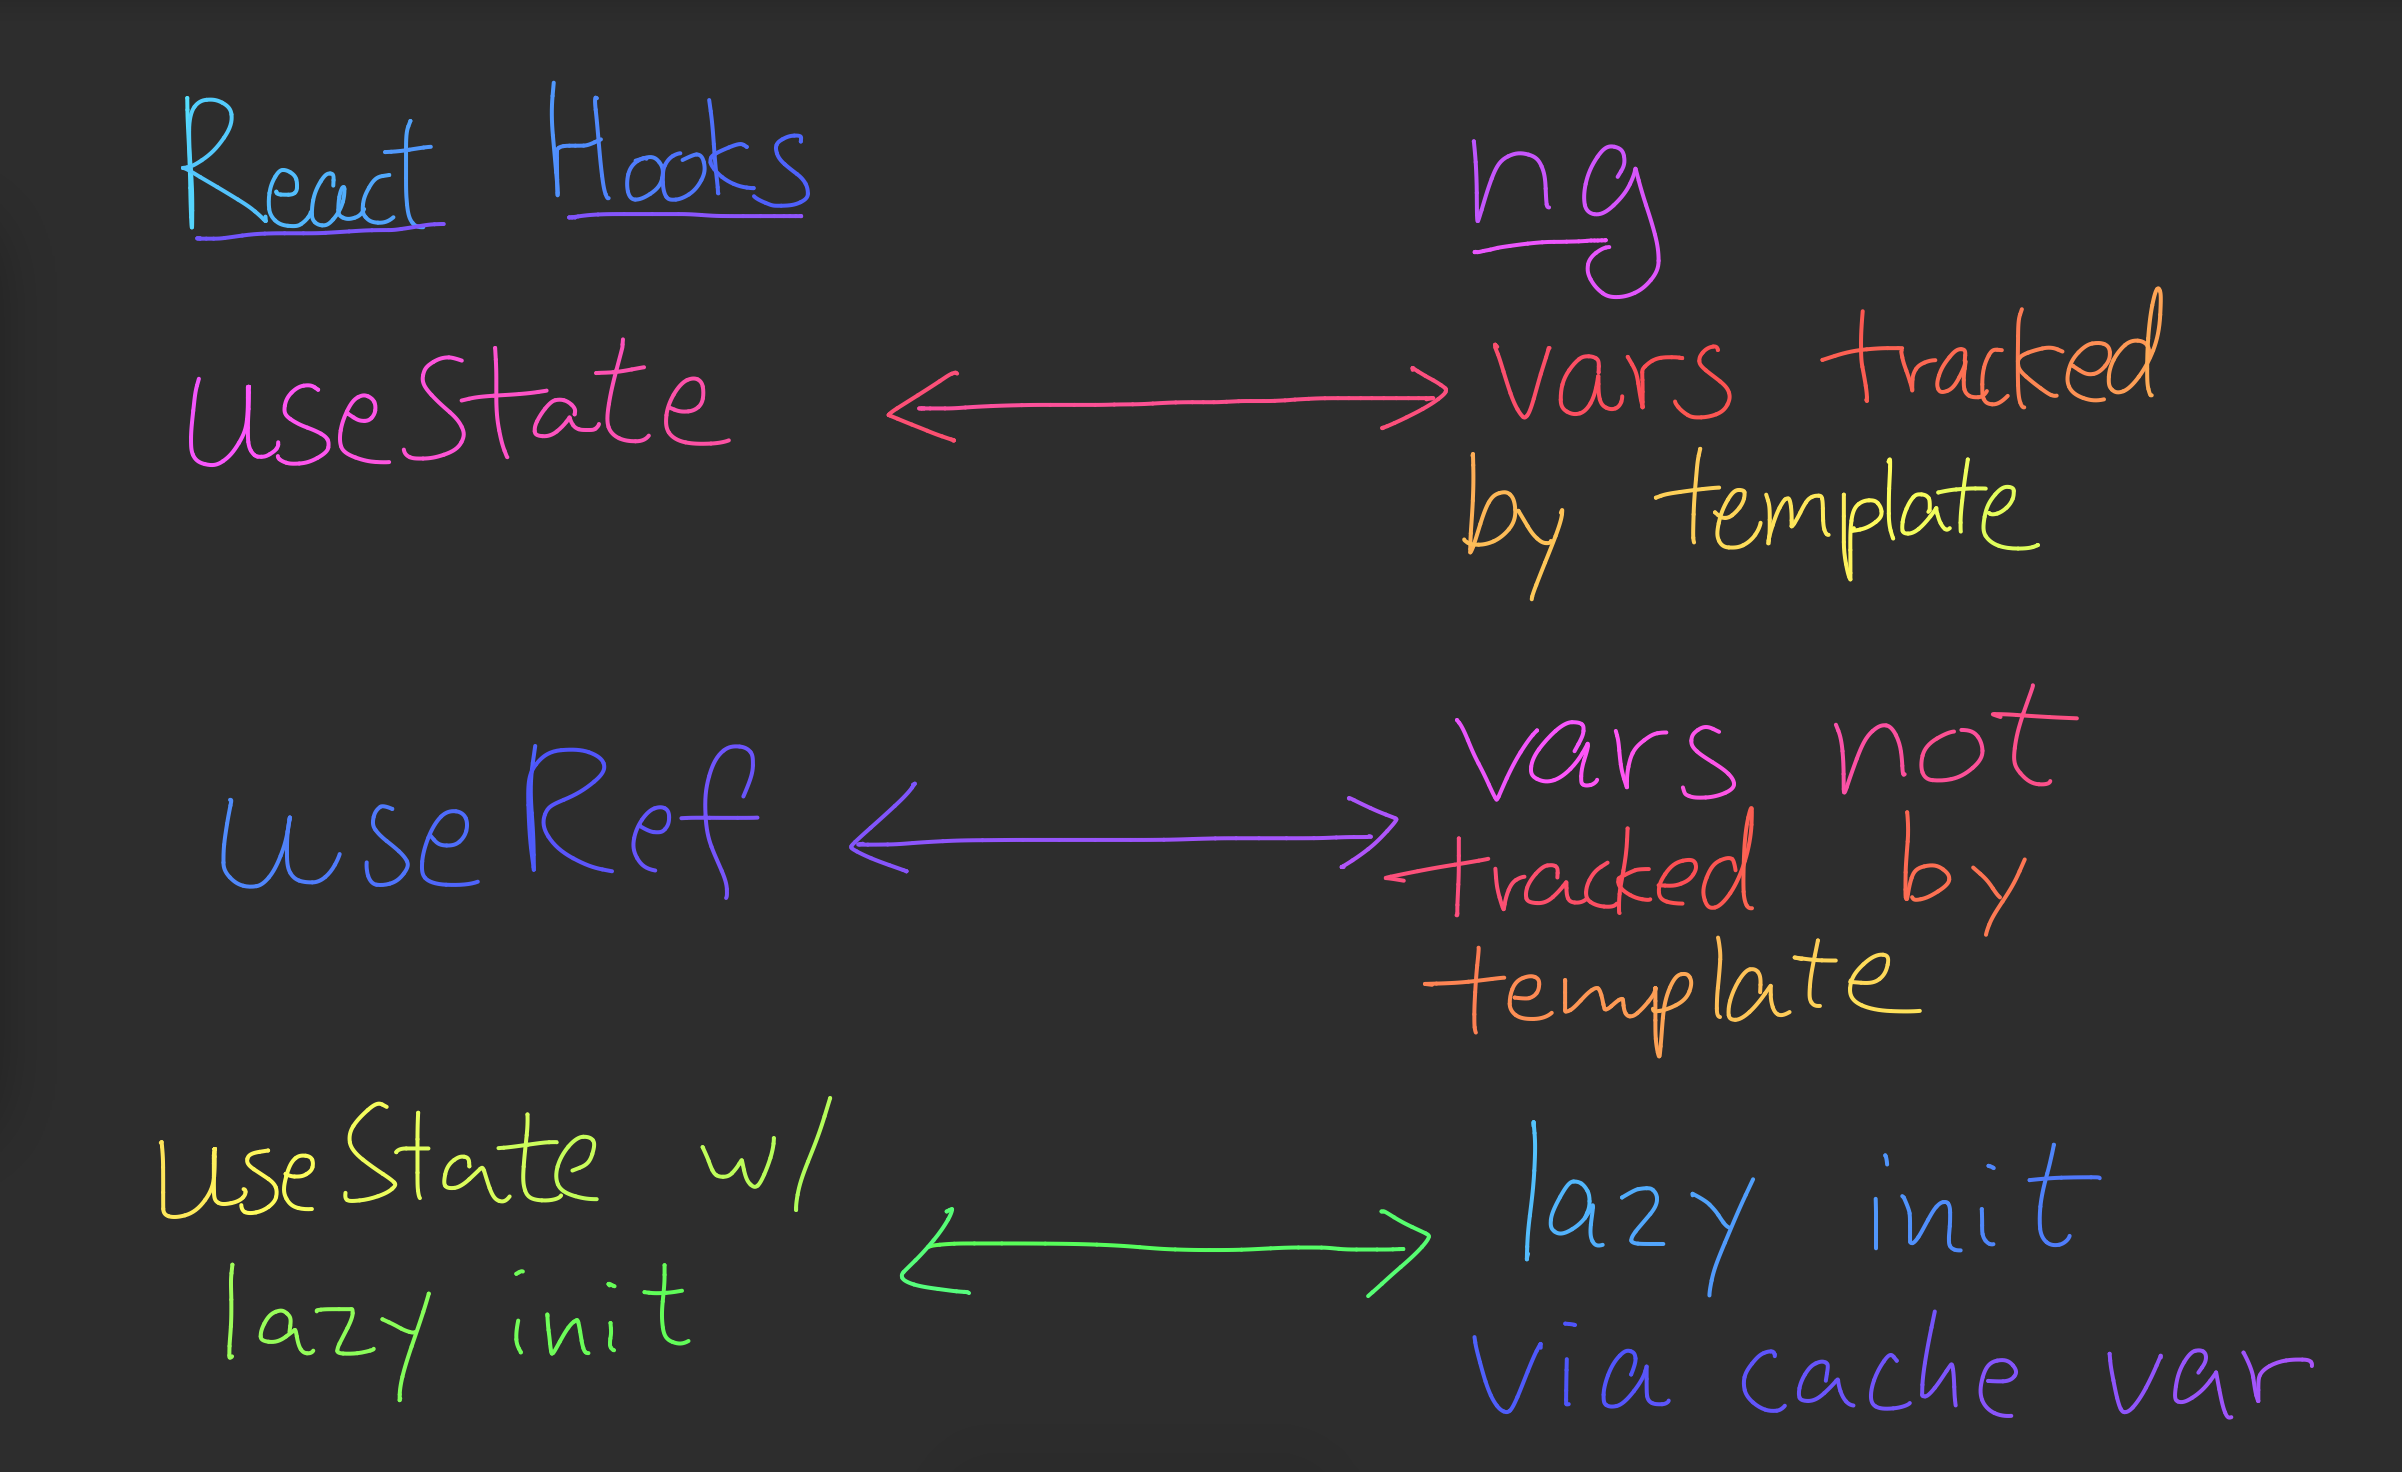 React Hooks
ng
useState
vars tracked
by template
useRef
vars not
tracked by
template
useState w/
lazy init
lazy init
via cache var